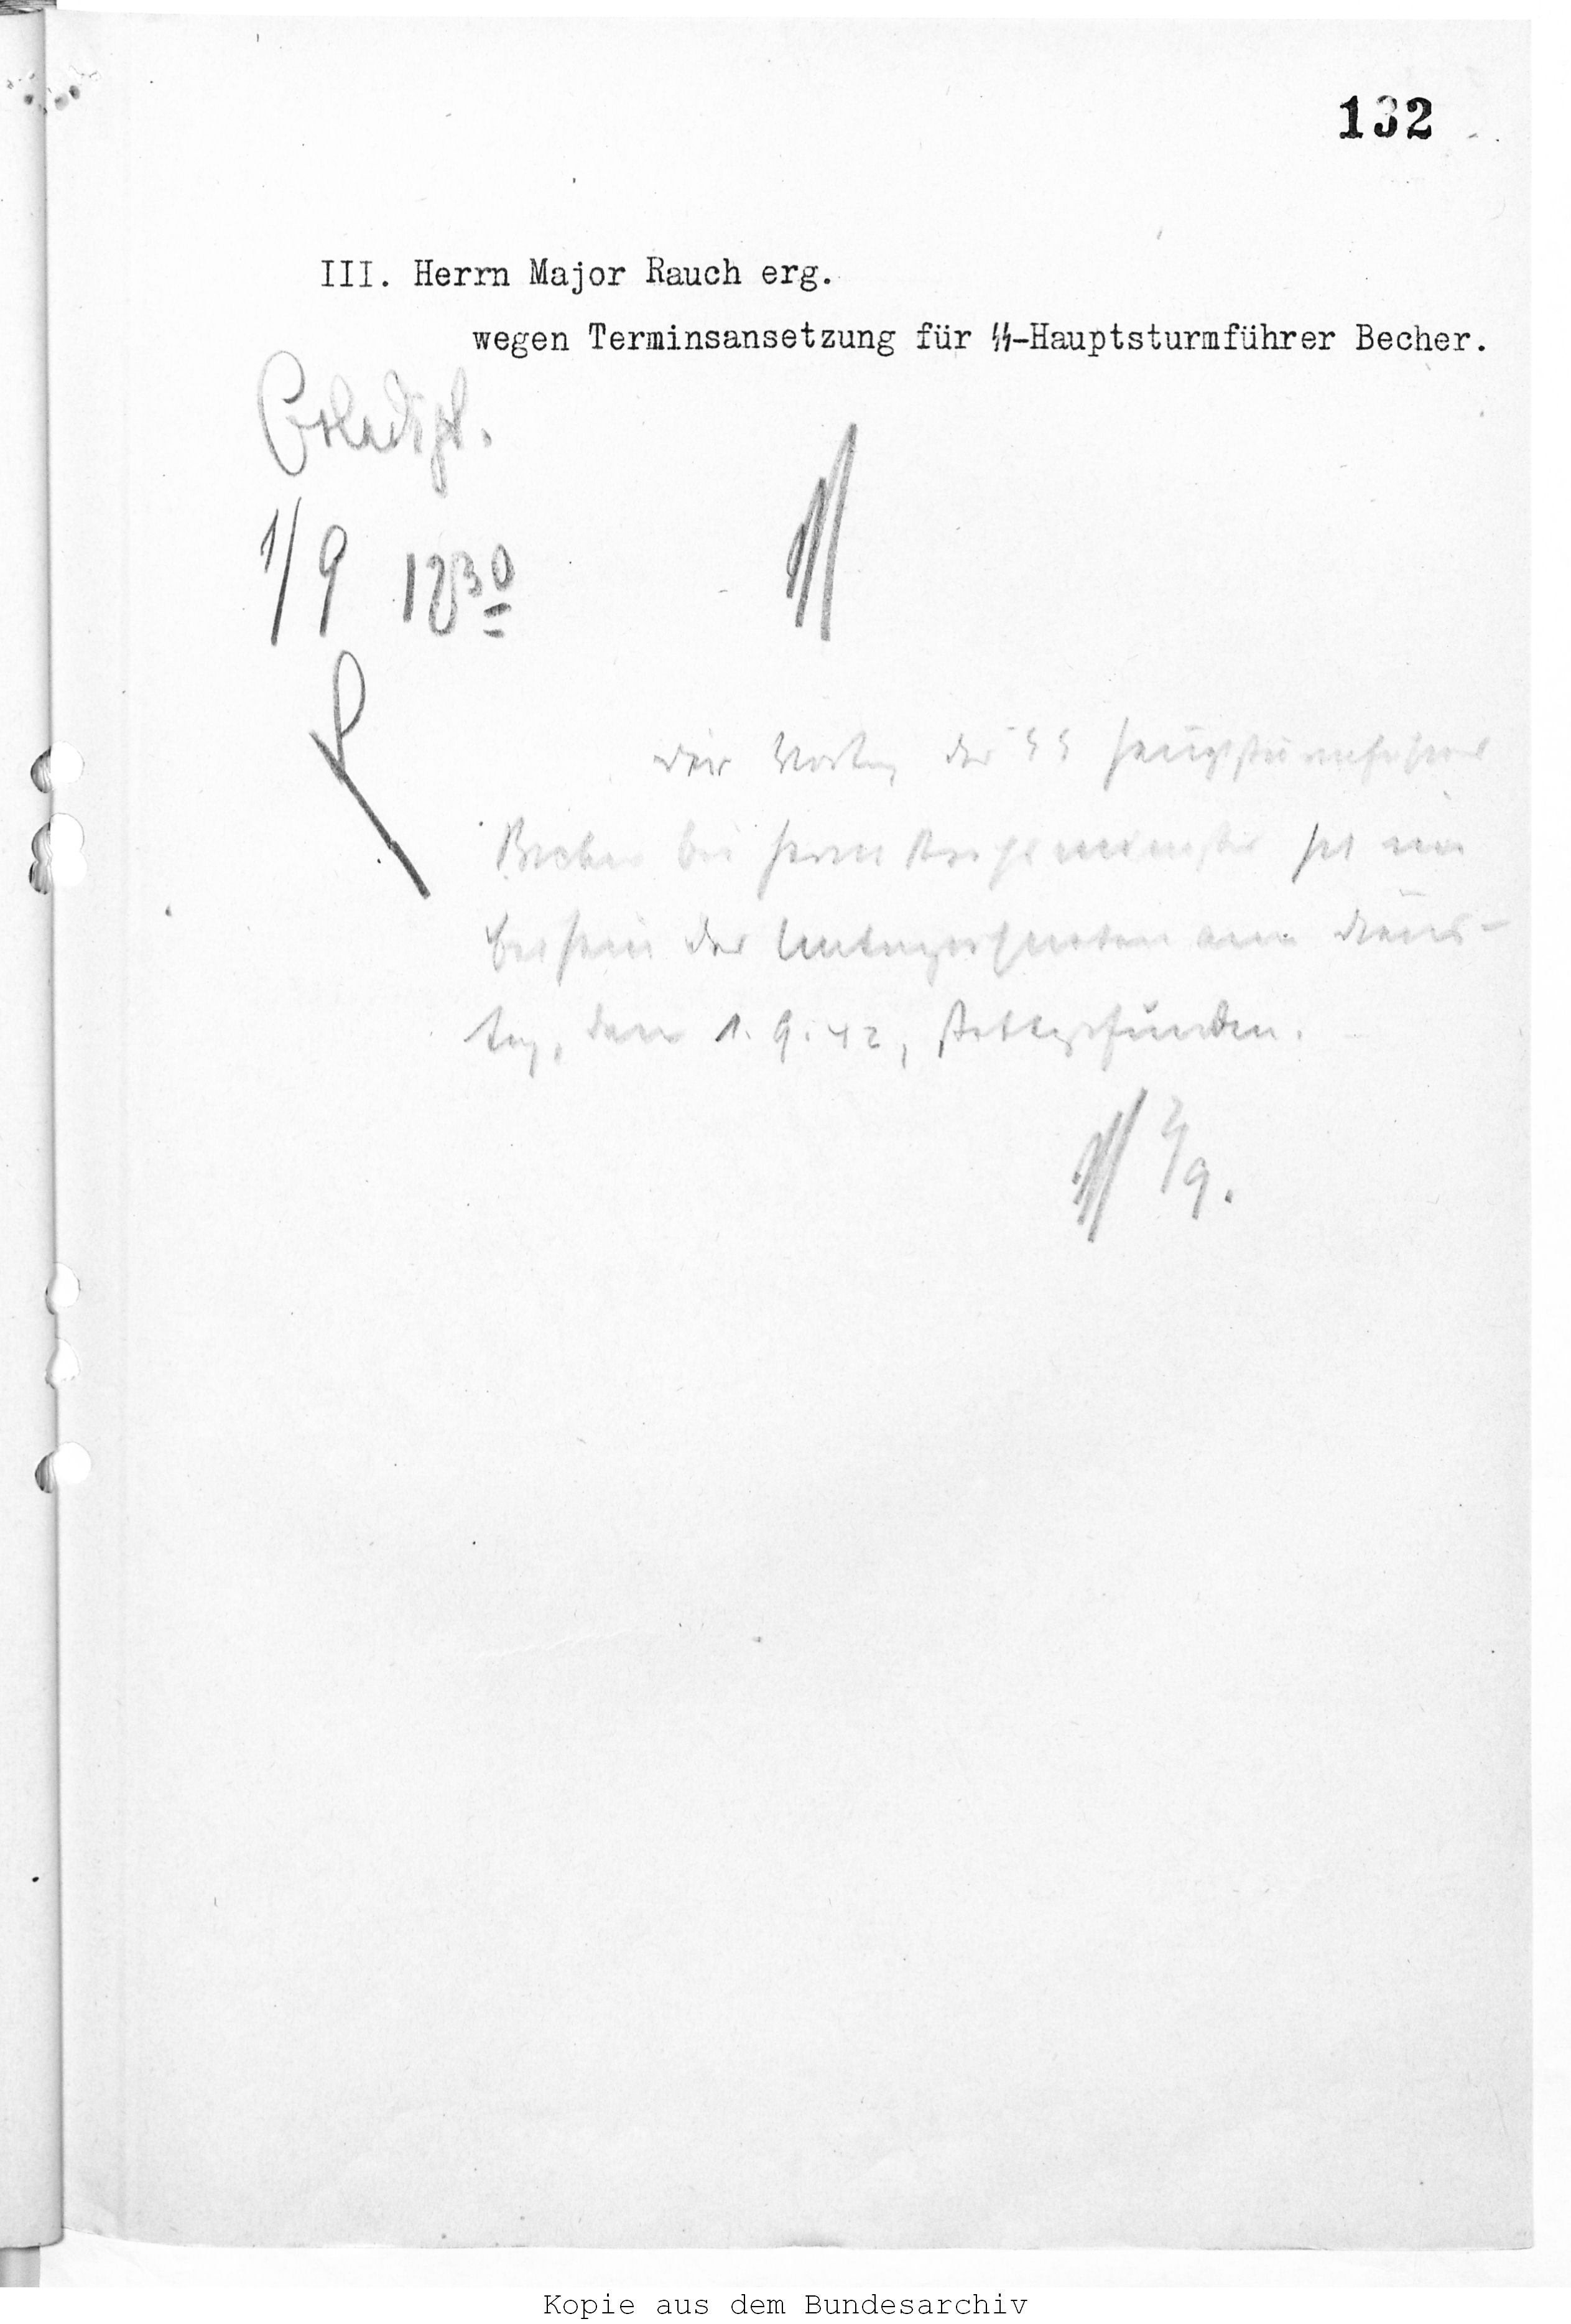 132
III. Herrn Major Rauch erg.
wegen Terminsansetzung für SS-Hauptsturmführer Becher.
Erledigt.
1/9 18³⁰
Der Vortrag des SS Hauptsturmführers
Becher bei Herrn Reichsminister hat im
Beisein des Unterzeichneten am Diens-
tag, dem 1.9.42, stattgefunden.
2/9.
Kopie aus dem Bundesarchiv